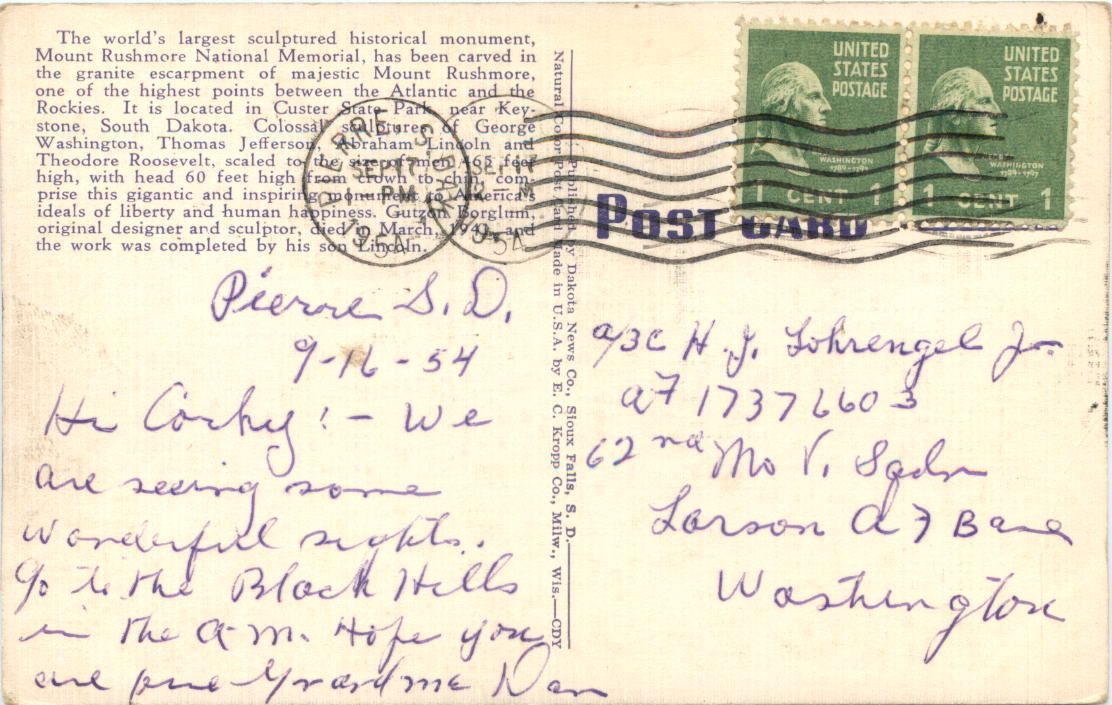 The world's largest sculptured historical monument,
Mount Rushmore National Memorial, has been carved in
the granite escarpment of majestic Mount Rushmore,
one of the highest points between the Atlantic and the
Rockies. It is located in Custer State Park, near Key-
stone, South Dakota. Colossal sculptures of George
Washington, Thomas Jefferson, Abraham Lincoln and
Theodore Roosevelt, scaled to the size of men 465 feet
high, with head 60 feet high from crown to chin, com-
prise this gigantic and inspiring monument to America's
ideals of liberty and human happiness. Gutzon Borglum,
original designer and sculptor, died in March, 1941, and
the work was completed by his son Lincoln.
PIERRE, S. DAK.
SEP 17
PM
1954
SEP 17
M
1954
UNITED
STATES
POSTAGE
WASHINGTON
1789-1797
1 CENT 1
UNITED
STATES
POSTAGE
WASHINGTON
1789-1797
1 CENT 1
POST CARD
Natural Color Post Card Made in U.S.A. by E. C. Kropp Co., Milw., Wis.—CDY
Published by Dakota News Co., Sioux Falls, S. D.
Pierre S. D.
9-16-54
Hi Corky! - We
are seeing some
wonderful sights.
Go to the Black Hills
in the A.M. Hope you
are fine Grandma Dan
A/3C H. J. Lohrengel Jr.
AF 17376603
62nd Mo V. Sqdn
Larson AF Base
Washington